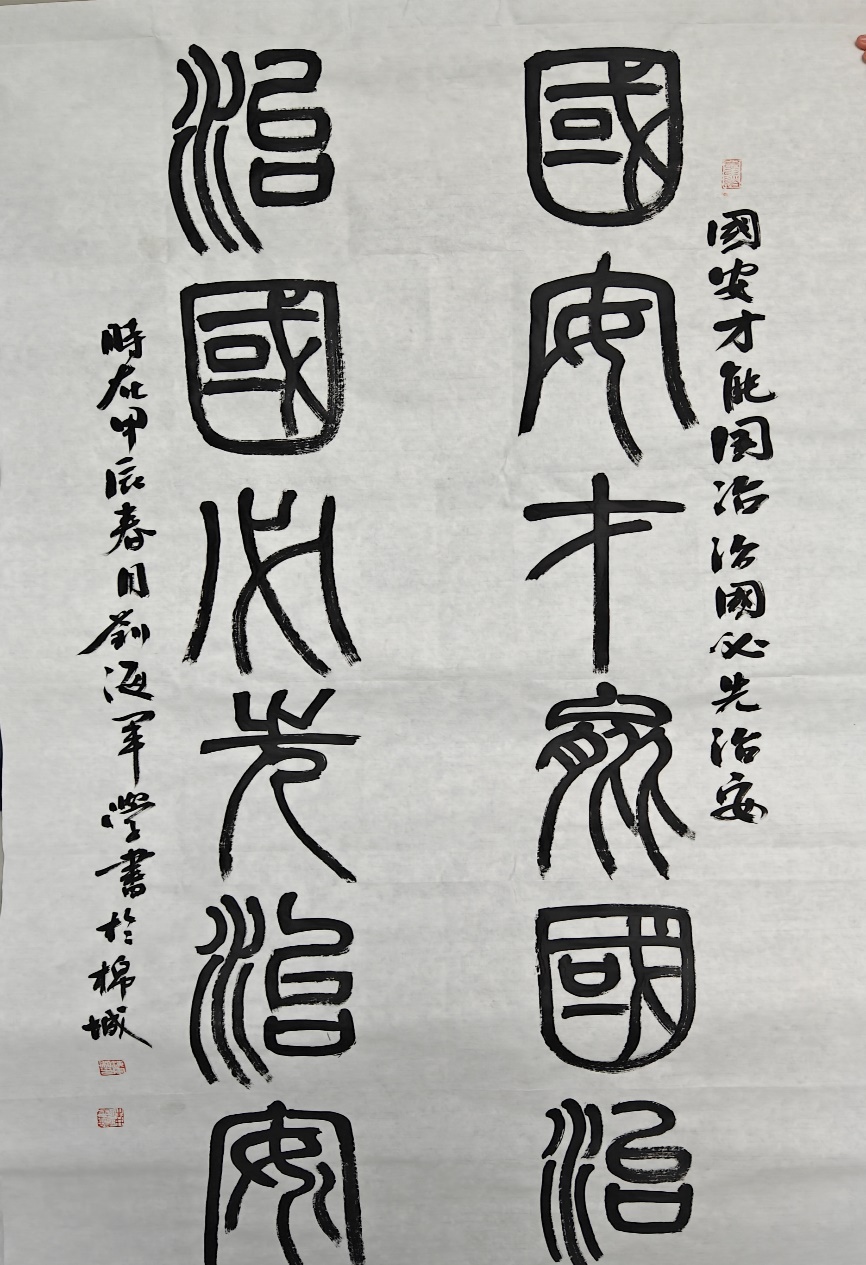 國安才能国治治國必先治安
國安才能國治
治國必先治安
時在甲辰春月劉海軍學書於棉城